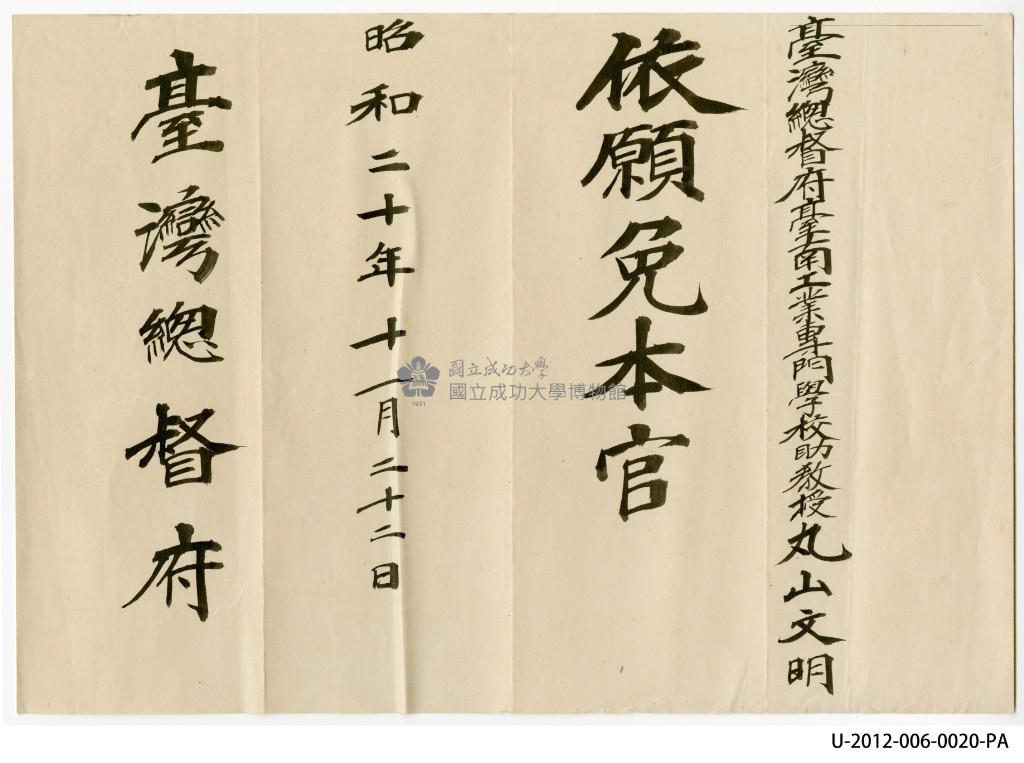 臺灣總督府臺南工業專門學校助教授丸山文明
依願免本官
昭和二十年十一月二十二日
臺灣總督府
國立成功大學
國立成功大學博物館
1931
U-2012-006-0020-PA